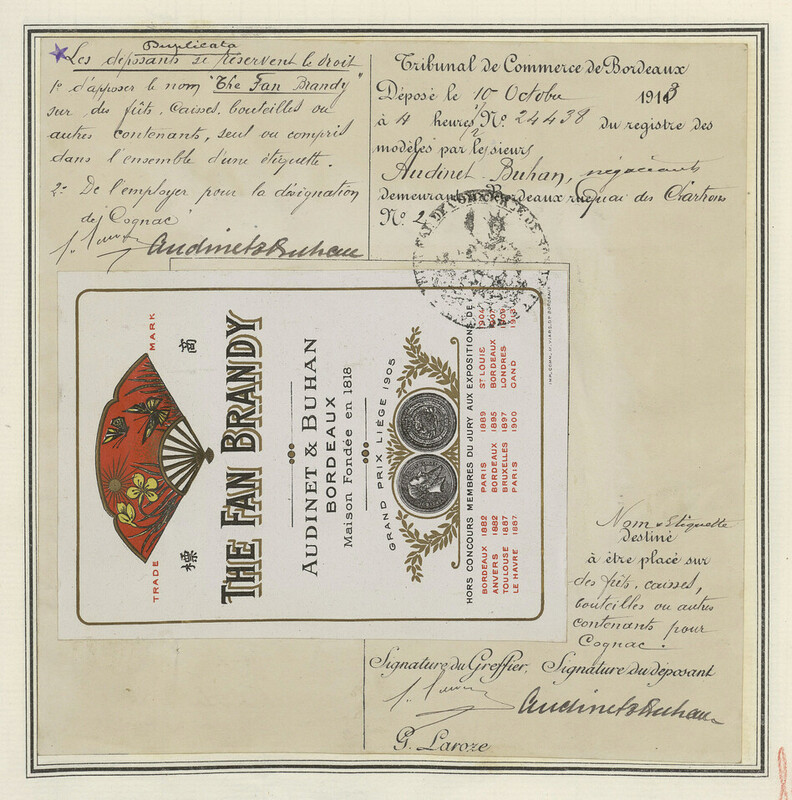 Duplicata
Les déposants se réservent le droit
1º d'apposer le nom "The Fan Brandy"
sur des fûts, caisses, bouteilles ou
autres contenants, seul ou compris
dans l'ensemble d'une étiquette.
2º De l'employer pour la désignation
de Cognac
Audinet & Buhan
Tribunal de Commerce de Bordeaux
Déposé le 10 Octobre 1913
à 4 heures 1/2 Nº 24438 du registre des
modèles par le sieurs
Audinet Buhan, négociants
demeurant à Bordeaux rue quai des Chartrons
Nº 2
TRADE MARK
商標
THE FAN BRANDY
AUDINET & BUHAN
BORDEAUX
Maison Fondée en 1818
GRAND PRIX LIÈGE 1905
HORS CONCOURS MEMBRES DU JURY AUX EXPOSITIONS DE
BORDEAUX 1882 PARIS 1889 ST LOUIS 1904
ANVERS 1882 BORDEAUX 1895 BORDEAUX 1907
TOULOUSE 1887 BRUXELLES 1897 LONDRES
LE HAVRE 1887 PARIS 1900 GAND 1913
Nom & Etiquette
destiné
à être placé sur
des fûts, caisses,
bouteilles ou autres
contenants pour
Cognac.
Signature du Greffier, Signature du déposant
Audinet & Buhan
G. Laroze